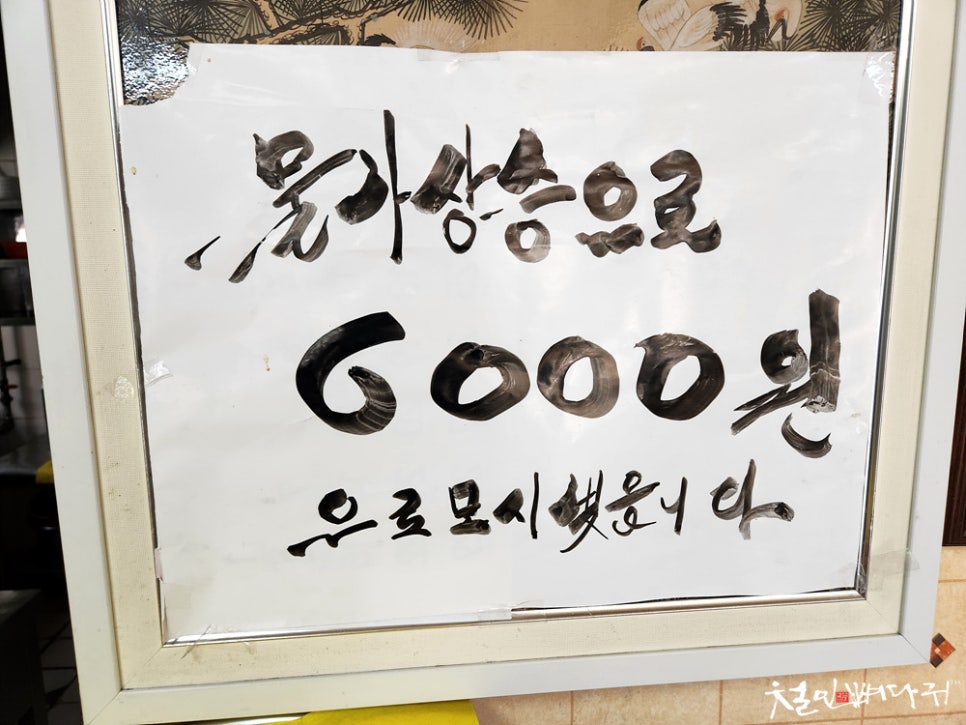 물가상승으로
6000원
으로모시겠읍니다.
철민뼈다귀